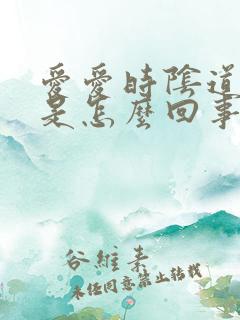 愛愛時陰道
是怎麼回事
谷維素
未經同意禁止轉載